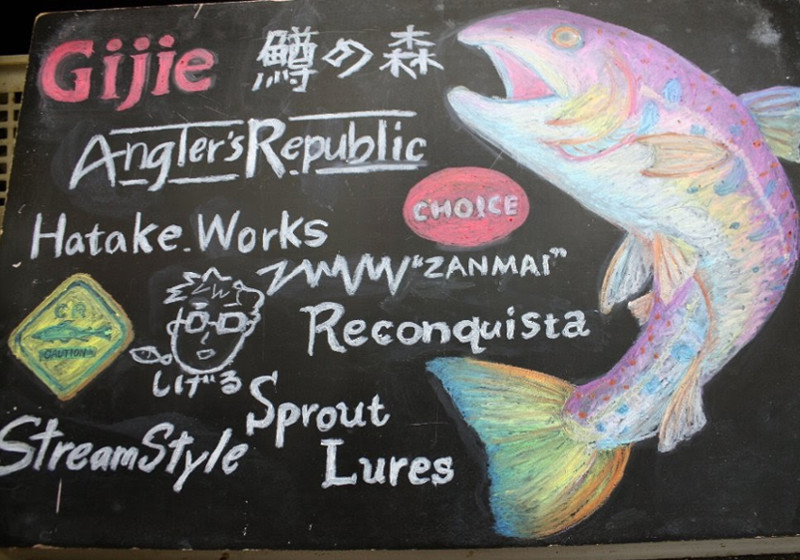 Gijie
鱒の森
Angler's Republic
CHOICE
Hatake.Works
"ZANMAI"
CAUTION
Reconquista
しげる
Sprout
Lures
StreamStyle